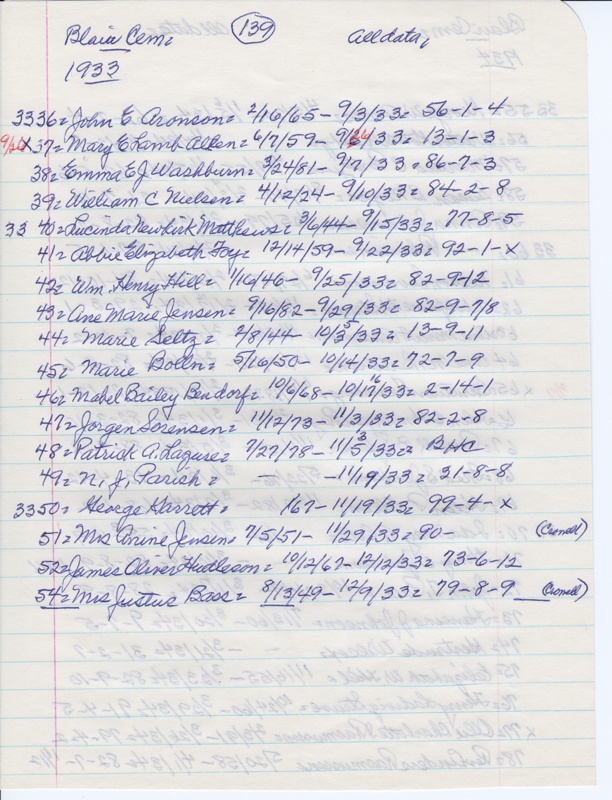 Blair Cem. 139 All data,
1933
3336= John E Aronson= 2/16/65- 9/3/33= 56-1-4
9/26 x 37= Mary E Lamb Allen= 6/7/59- 9/6/33= 13-1-3
38= Emma E J Washburn= 3/24/81- 9/7/33= 86-7-3
39= William C Nielsen= 4/12/24- 9/10/33= 84-2-8
33 40= Lucinda Newkirk Matthews= 3/6/44- 9/15/33= 77-8-5
41= Abbie Elizabeth Foy= 12/14/59- 9/22/33= 92-1-x
42= Wm. Henry Hill= 1/16/46- 9/25/33= 82-9-12
43= Ane Marie Jensen= 9/16/82- 9/29/33= 82-9-7/8
44= Marie Seltz= 2/8/44- 10/3/33= 13-9-11
45= Marie Bolln= 5/16/50- 10/14/33= 72-7-9
46= Mabel Bailey Bendorf= 10/6/68- 10/17/33= 2-14-1
47= Jorgen Sorensen= 11/12/73- 11/3/33= 82-2-8
48= Patrick A. Lazure= 7/27/78- 11/5/33= BHC
49= N, J, Parish= - -11/19/33= 31-8-8
3350= George Garrett= /67- 11/19/33= 99-4-x
51= Mrs Anine Jensen= 7/5/51- 11/29/33= 90- (Cronell)
52= James Oliver Hudleson= 10/12/67- 12/12/33= 73-6-12
54= Mrs Justus Bass= 8/13/49- 12/9/33= 79-8-9 (Cronell)